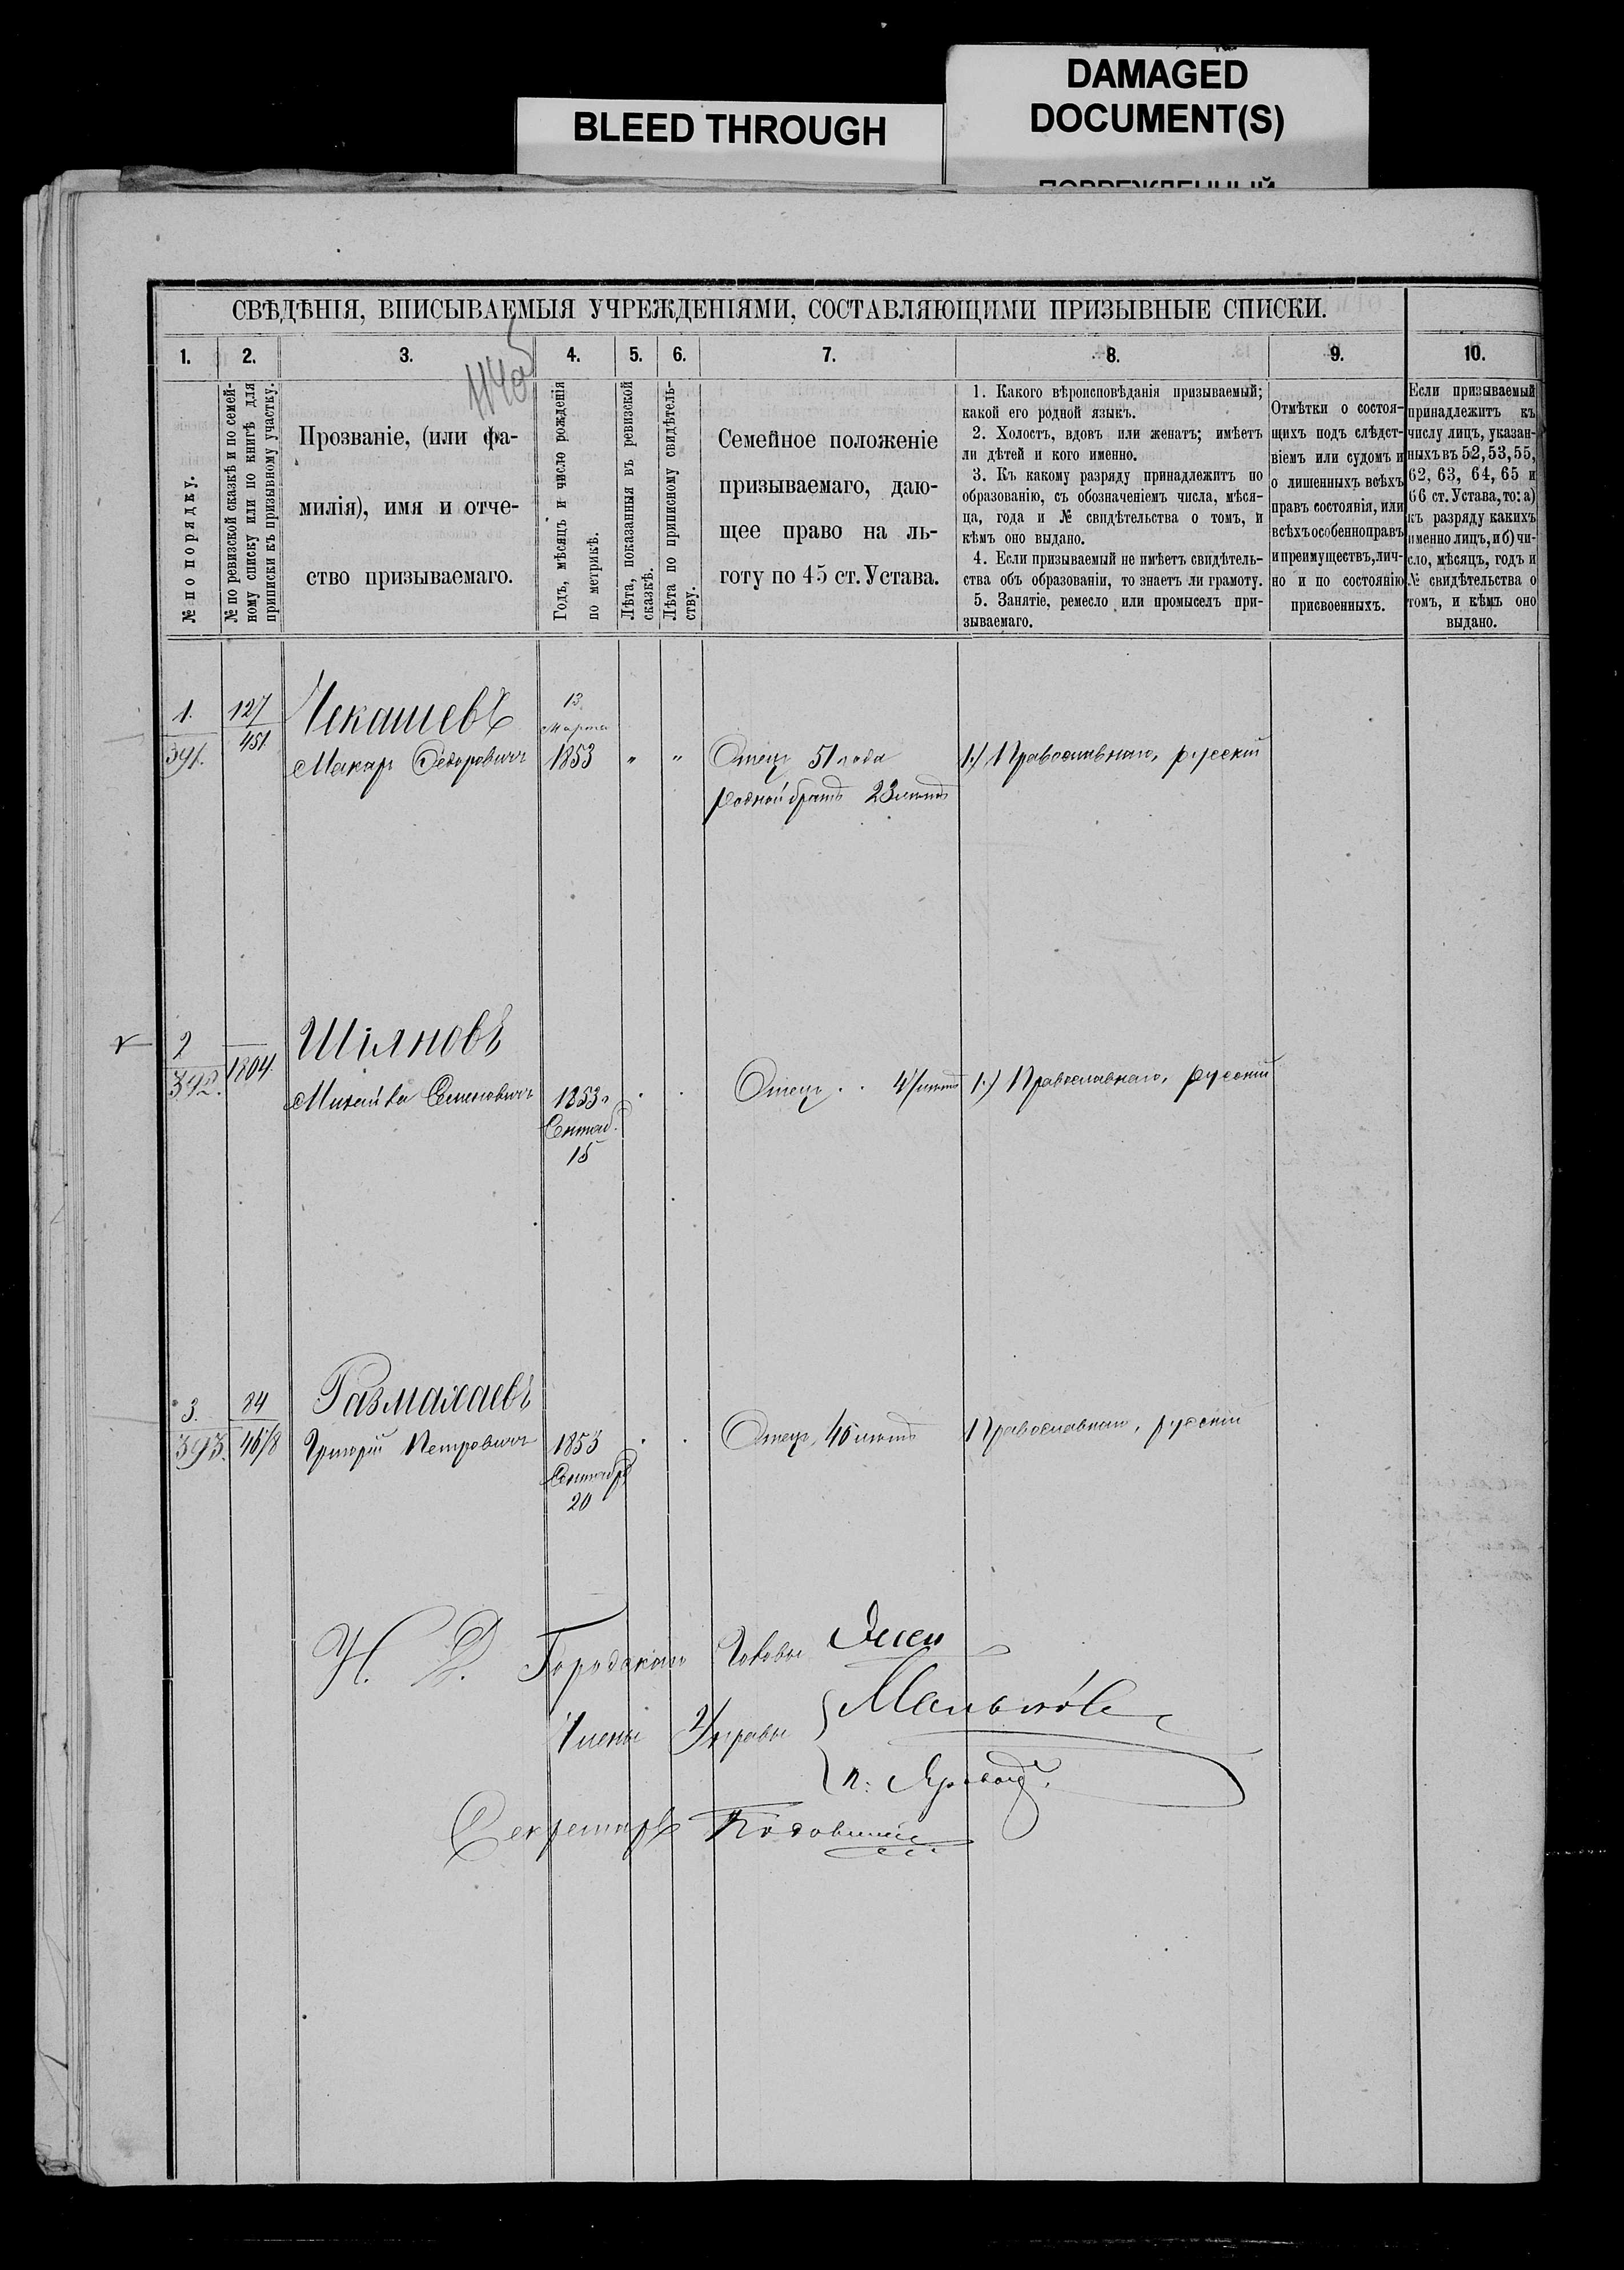 DAMAGED
DOCUMENT(S)
BLEED THROUGH
СВѢДѢНІЯ, ВПИСЫВАЕМЫЯ УЧРЕЖДЕНІЯМИ, СОСТАВЛЯЮЩИМИ ПРИЗЫВНЫЕ СПИСКИ.
1. 2. 3. 4. 5. 6. 7. 8. 9. 10.
№ по порядку.
№ по ревизской сказкѣ и по семей-
ному списку или по книгѣ для
приписки къ призывному участку.
Прозваніе, (или фа-
милія), имя и отче-
ство призываемаго.
Годъ, мѣсяцъ и число рожденія
по метрикѣ.
Лѣта, показанныя въ ревизской
сказкѣ.
Лѣта по приписному свидѣтель-
ству.
Семейное положеніе
призываемаго, даю-
щее право на ль-
готу по 45 ст. Устава.
1. Какого вѣроисповѣданія призываемый;
какой его родной языкъ.
2. Холостъ, вдовъ или женатъ; имѣетъ
ли дѣтей и кого именно.
3. Къ какому разряду принадлежитъ по
образованію, съ обозначеніемъ числа, мѣся-
ца, года и № свидѣтельства о томъ, и
кѣмъ оно выдано.
4. Если призываемый не имѣетъ свидѣтель-
ства объ образованіи, то знаетъ ли грамоту.
5. Занятіе, ремесло или промыселъ при-
зываемаго.
Отмѣтки о состоя-
щихъ подъ слѣдст-
віемъ или судомъ и
о лишенныхъ всѣхъ
правъ состоянія, или
всѣхъ особенно правъ
и преимуществъ, лич-
но и по состоянію
присвоенныхъ.
Если призываемый
принадлежитъ къ
числу лицъ, указан-
ныхъ въ 52, 53, 55,
62, 63, 64, 65 и
66 ст. Устава, то: а)
къ разряду какихъ
именно лицъ, и б) чи-
сло, мѣсяцъ, годъ и
№ свидѣтельства о
томъ, и кѣмъ оно
выдано.
1. 127 Чекашевъ 13
Марта
391. 451 Макаръ Ѳедоровичъ 1853 " " Отецъ 51 года 1.) Православнаго, русскій
родной братъ 23 лѣтъ
2 Шіяновъ
392. 1804. Семеновичъ 1853 Отецъ 1.) Православнаго, русскій
Сентяб.
15
3. 84 Размахаевъ
393. 46/8 Григорій Петровичъ 1853 Отецъ, 46 лѣтъ Православнаго, русскій
Сентябрь
20
И. Д. Городскаго Головы
Члены Управы
Секретарь